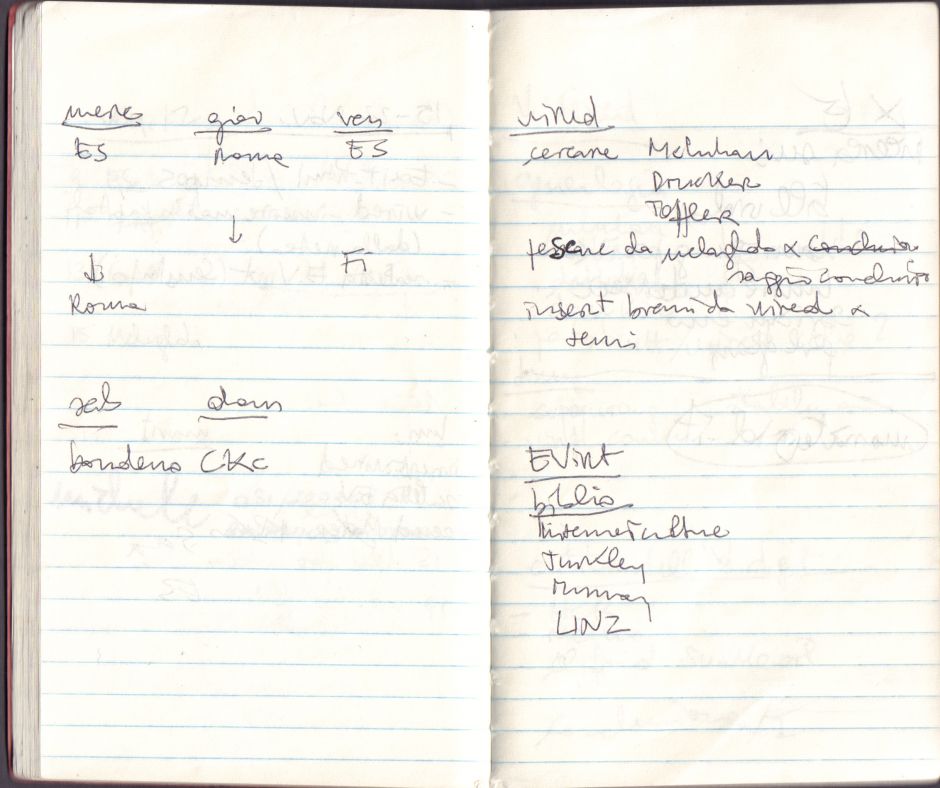 merc giov ven
ES Roma ES
↓
↓ Fi
Roma
sab dom
bondeno CKC
wired
cercare McLuhan
Drucker
Toffler
pescare da x
saggio
insert brani da wired x
temi
EVint
biblio
Internet culture
Turkley
Murray
LINZ